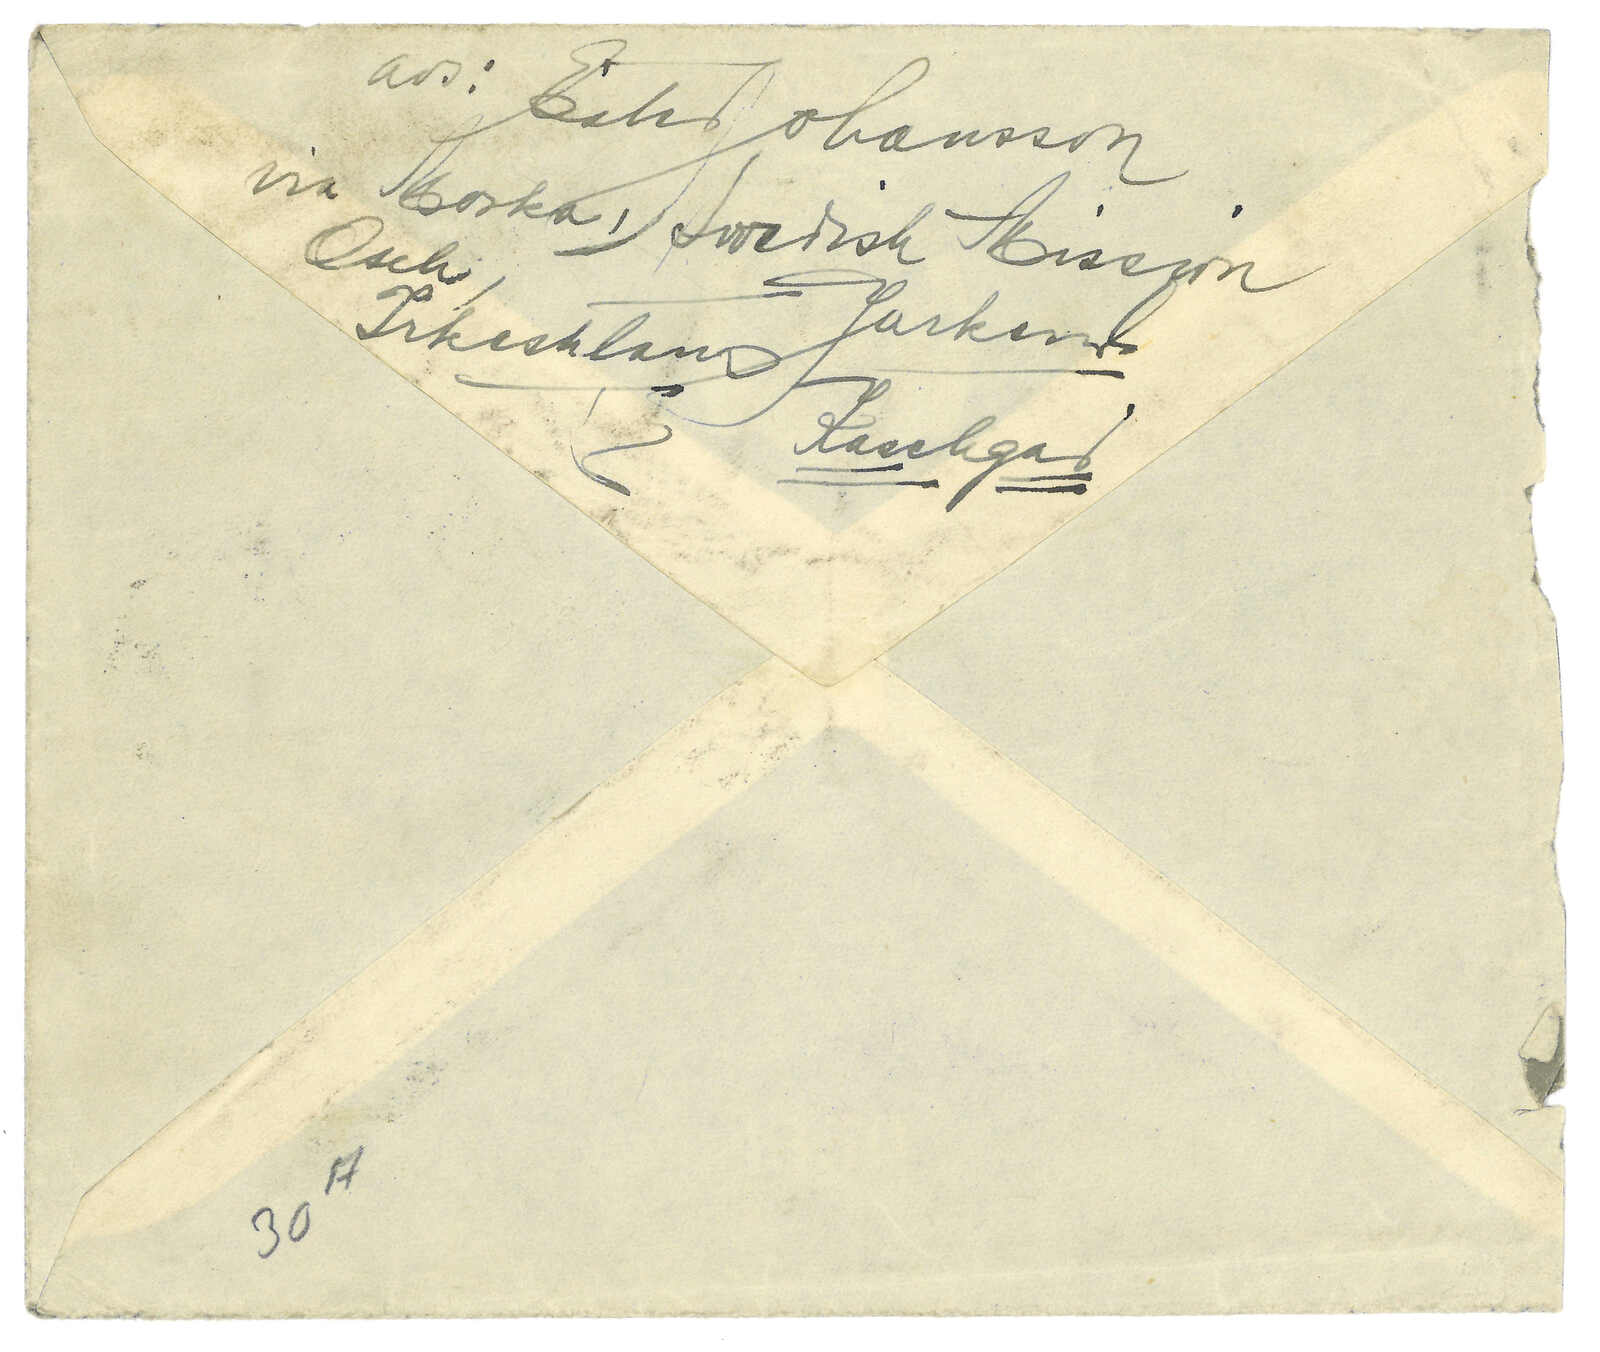 avs: Ester Johansson
via Moska, Swedish Mission
Osch,
Irkeshtam Jarkend
Kaschgar
30 A